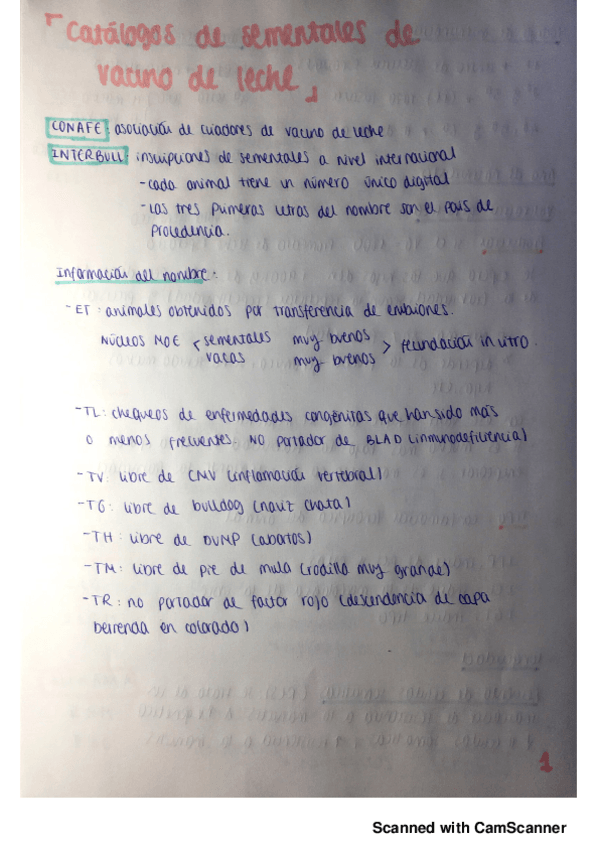 「Catálogos de sementales de
vacino de leche」
CONAFE: asociación de criadores de vacino de leche
INTERBULL: inscripciones de sementales a nivel internacional
-cada animal tiene un número único digital
-Las tres primeras letras del nombre son el país de
procedencia.
Información del nombre:
-ET: animales obtenidos por transferencia de embriones.
NÚCLEOS MOE < sementales muy buenos > fecundación in vitro.
vacas muy buenos
-TL: chequeos de enfermedades congénitas que han sido más
o menos frecuentes. NO portador de BLAD (inmunodeficiencia)
-TV: libre de CMV (inflamación vertebral)
-TG: libre de bulldog (nariz chata)
-TH: libre de DUMP (abortos)
-TM: libre de pie de mula (rodilla muy grande)
-TR: no portador de factor rojo (descendencia de capa
berrenda en colorado)
1
Scanned with CamScanner